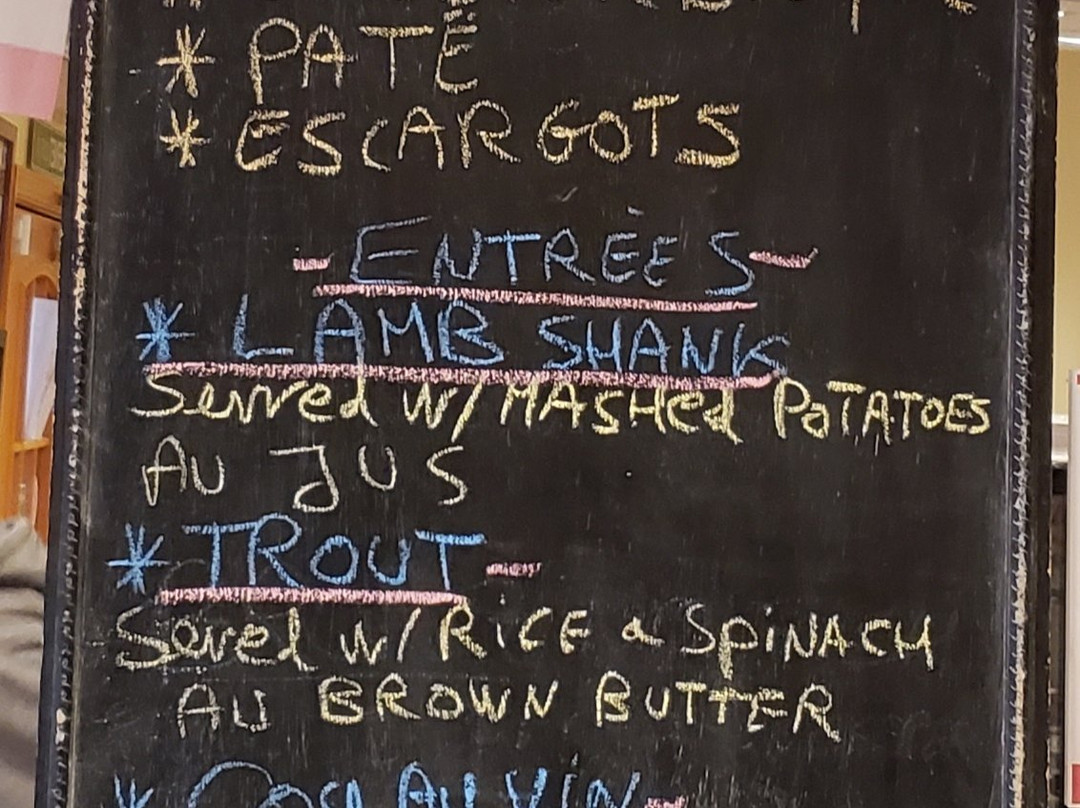 * PATÉ
* ESCARGOTS
- ENTRÉES -
* LAMB SHANK
Served w/ MASHed PoTATOES
AU JUS
* TROUT -
Seved w/ RiCE & SPiNACH
AU BROWN BUTTER
* COQ AU VIN -